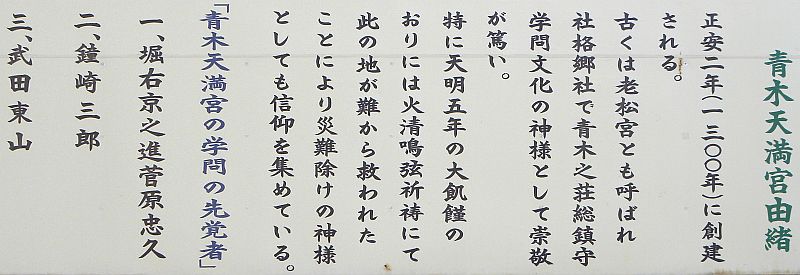 青木天満宮由緒
正安二年(一三〇〇年)に創建
される。
古くは老松宮とも呼ばれ
社格郷社で青木之荘総鎮守
学問文化の神様として崇敬
が篤い。
特に天明五年の大飢饉の
おりには火清鳴弦祈祷にて
此の地が難から救われた
ことにより災難除けの神様
としても信仰を集めている。
「青木天満宮の学問の先覚者」
一、堀右京之進菅原忠久
二、鐘崎三郎
三、武田東山